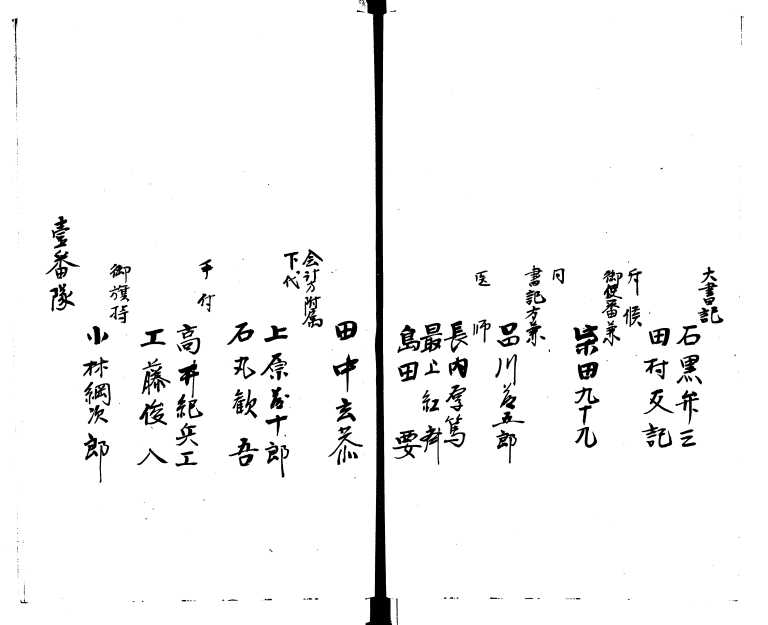 大書記
石黒弁三
田村又記
斥候
御使番兼
柴田九十九
同
書記方兼
品川善五郎
医師
長内厚篤
最上紅
島田要
田中玄恭
会計方附属
下代
上原十郎
石丸歓吾
手付
高井紀兵工
工藤俊八
御旗持
小林綱次郎
壹番隊